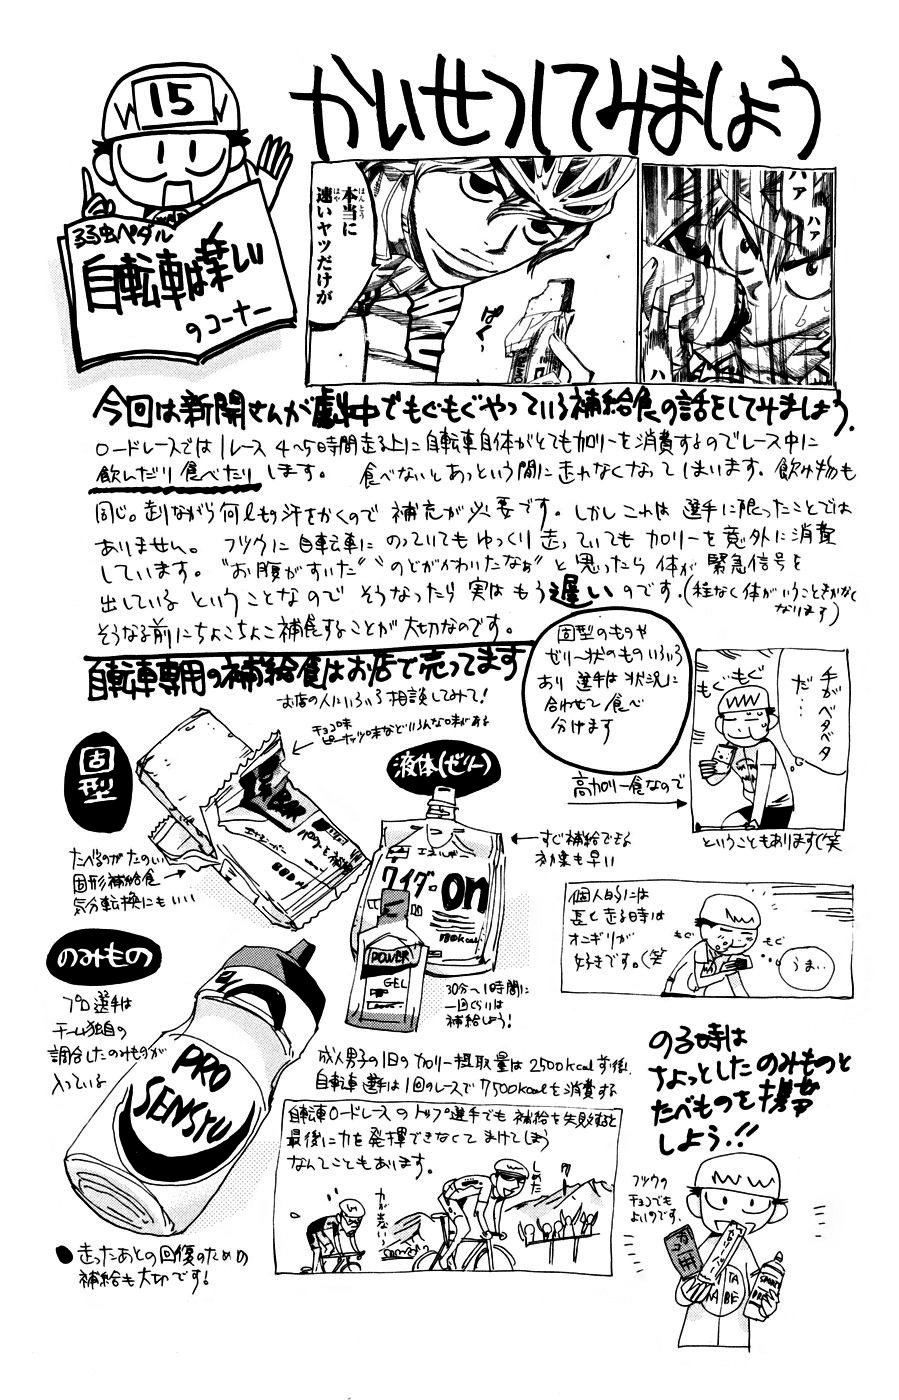 かいせつしてみましょう
15
弱虫ペダル
自転車は楽しい
のコーナー
本当に
ほんとう
速いヤツだけが
はや
ぱく
ハァ
ハァ
ハァ
今回は新開さんが劇中でもぐもぐやっている補給食の話をしてみましょう.
ロードレースでは1レース 4〜5時間走る上に自転車自体がとてもカロリーを消費するのでレース中に
飲んだり食べたりします。 食べないとあっという間に走れなくなってしまいます。飲み物も
同じ。走りながら何ℓも汗をかくので 補充が必要です。しかしこれは選手に限ったことでは
ありません。 フツウに自転車に のっていてもゆっくり走っていても カロリーを意外に消費
しています。"お腹がすいた" "のどがかわいたなぁ"と思ったら 体が 緊急信号を
出している ということなので そうなったら実はもう遅いのです。(程なく体がいうことをきかなく
なります)
そうなる前にちょこちょこ補食することが大切なのです。
自転車専用の補給食はお店で売ってます
お店の人にいろいろ相談してみて!
固型のものや
ゼリー状のものいろいろ
あり 選手は状況に
合わせて食べ
分けます
もぐもぐ
手がベタベタ
だ…
高カロリー食なので
ということもあります(笑
固型
チョコ味
ピーナッツ味などいろんな味がある
BAR
たべるのがたのしい
固形補給食
気分転換にもいい
液体(ゼリー)
エネルギー
ワイダー
on
180kcal
POWER
GEL
すぐ補給できる
効果も早い
30分〜1時間に
一回ぐらいは
補給しよう!
個人的には
長く走る時は
オニギリが
好きです。(笑
もぐ
もぐ
うま…
のみもの
プロ選手は
チーム独自の
調合したのみものが
入っている
PRO
SENSYU
成人男子の1日のカロリー摂取量は2500kcal前後.
自転車選手は1回のレースで7500kcalを消費する
自転車ロードレースのトップ選手でも補給を失敗すると
最後に力を発揮できなくてまけてしまう
なんてこともあります。
力が出ない
しめた
のる時は
ちょっとしたのみものと
たべものを携帯
しよう.!!
フツウの
チョコでも
よいのです.
TA
NA
BE
●走ったあとの回復のための
補給も大切です!